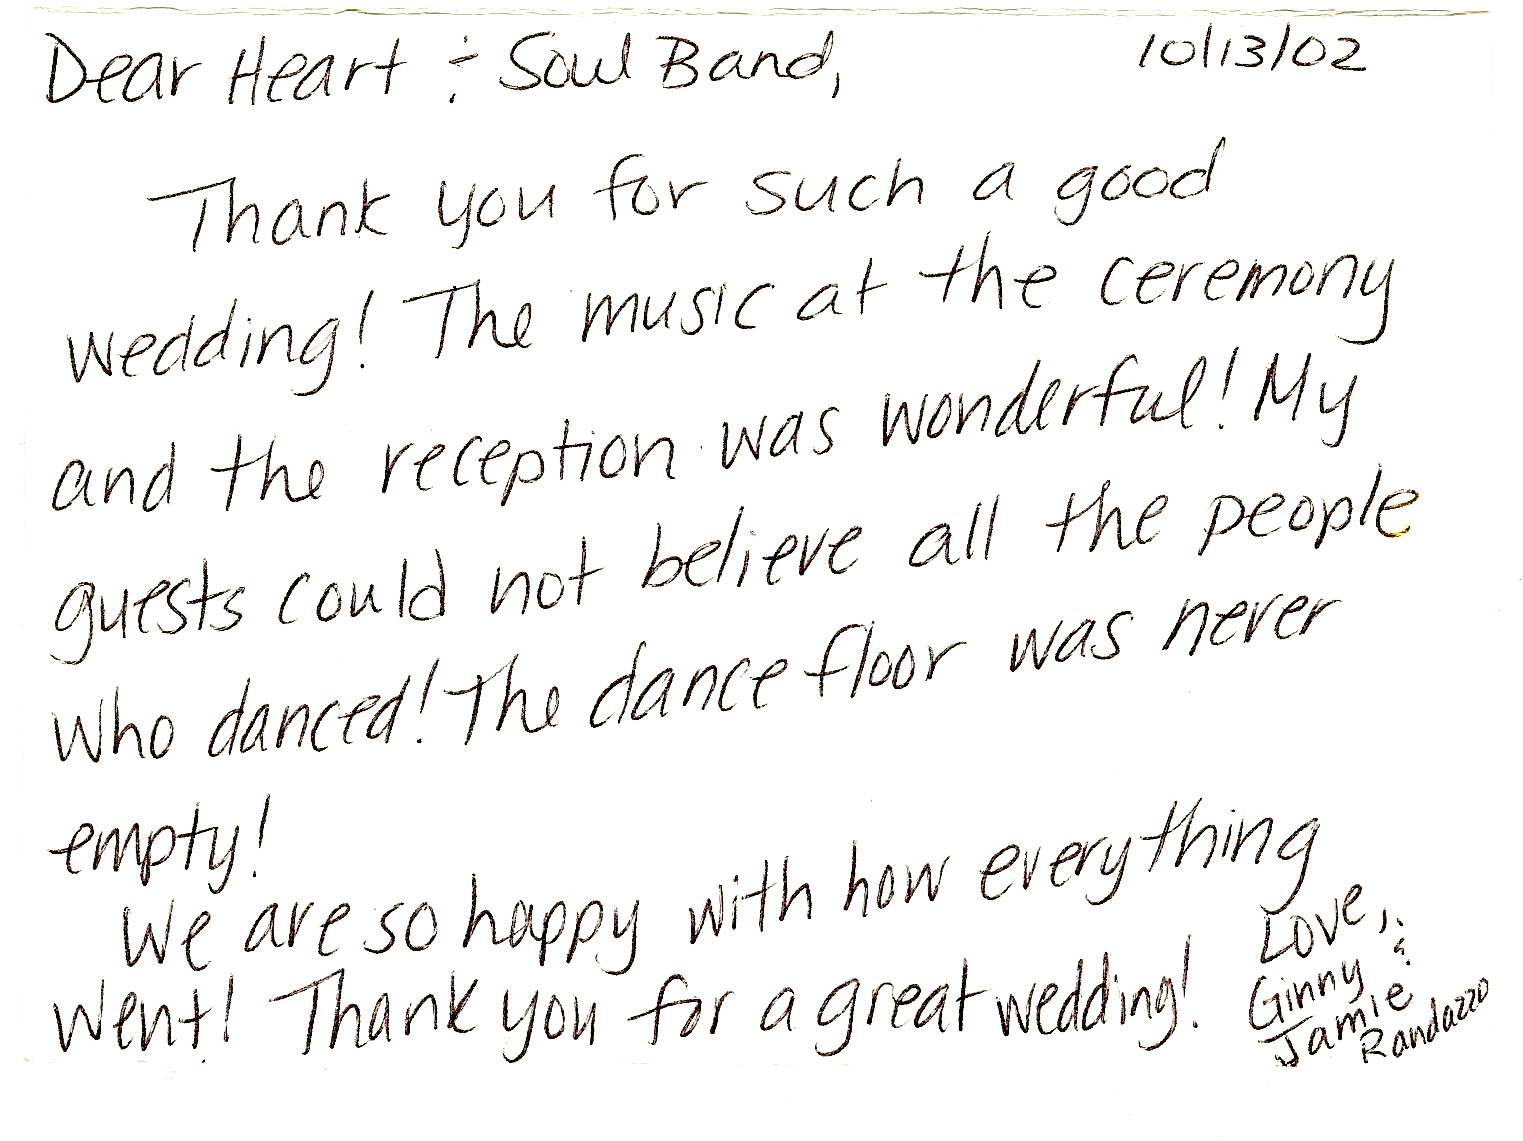 Dear Heart ÷ Soul Band, 10/13/02
Thank you for such a good
wedding! The music at the ceremony
and the reception was wonderful! My
guests could not believe all the people
who danced! The dance floor was never
empty!
We are so happy with how everything
went! Thank you for a great wedding!
Love,
Ginny &
Jamie
Randazzo